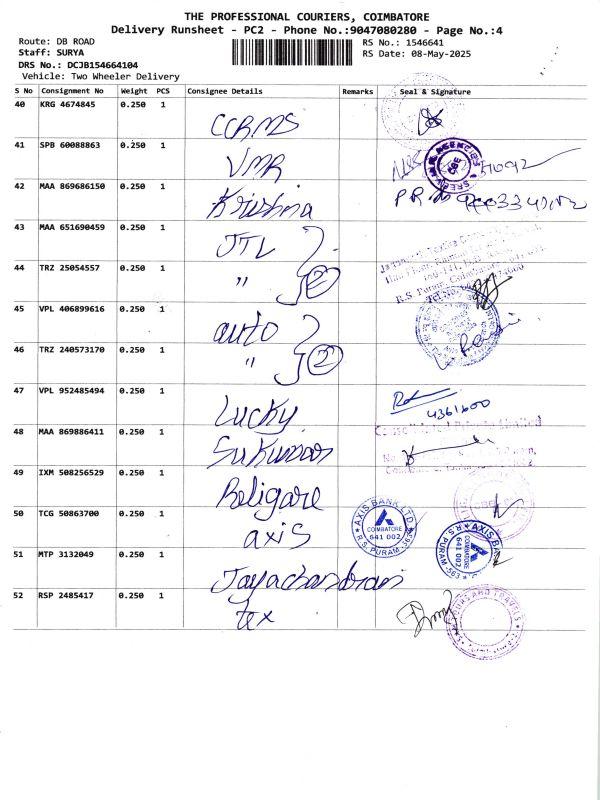 THE PROFESSIONAL COURIERS, COIMBATORE
Delivery Runsheet - PC2 - Phone No.:9047080280 - Page No.:4
Route: DB ROAD
RS No.: 1546641
Staff: SURYA
RS Date: 08-May-2025
DRS No.: DCJB154664104
Vehicle: Two Wheeler Delivery
S No Consignment No Weight PCS Consignee Details Remarks Seal & Signature
40 KRG 4674845 0.250 1 CCRMS
41 SPB 60088863 0.250 1 VMR
42 MAA 869686150 0.250 1 Krishna
43 MAA 651690459 0.250 1 JTL
44 TRZ 25054557 0.250 1 " 2
45 VPL 406899616 0.250 1 auto
46 TRZ 240573170 0.250 1 " 2
47 VPL 952485494 0.250 1 Lucky 4361600
48 MAA 869886411 0.250 1 Sukumar
49 IXM 508256529 0.250 1 Religare
50 TCG 50863700 0.250 1 axis
AXIS BANK LTD.
COIMBATORE
641 002
R.S. PURAM
51 MTP 3132049 0.250 1 Jayachandran
AXIS BANK
COIMBATORE
641 002
R S PURAM
52 RSP 2485417 0.250 1 tex